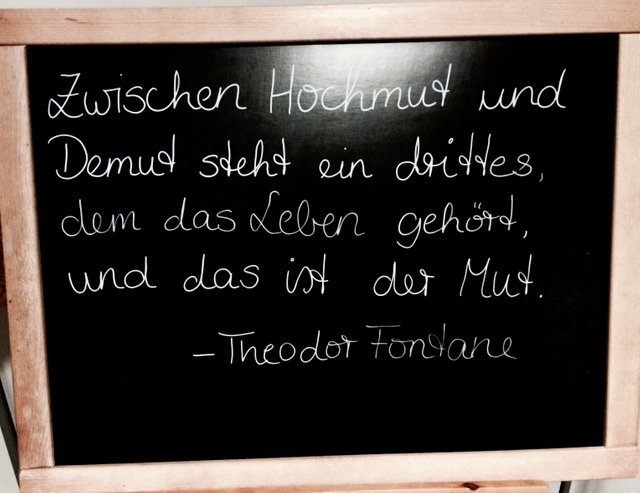 Zwischen Hochmut und
Demut steht ein drittes,
dem das Leben gehört,
und das ist der Mut.
– Theodor Fontane